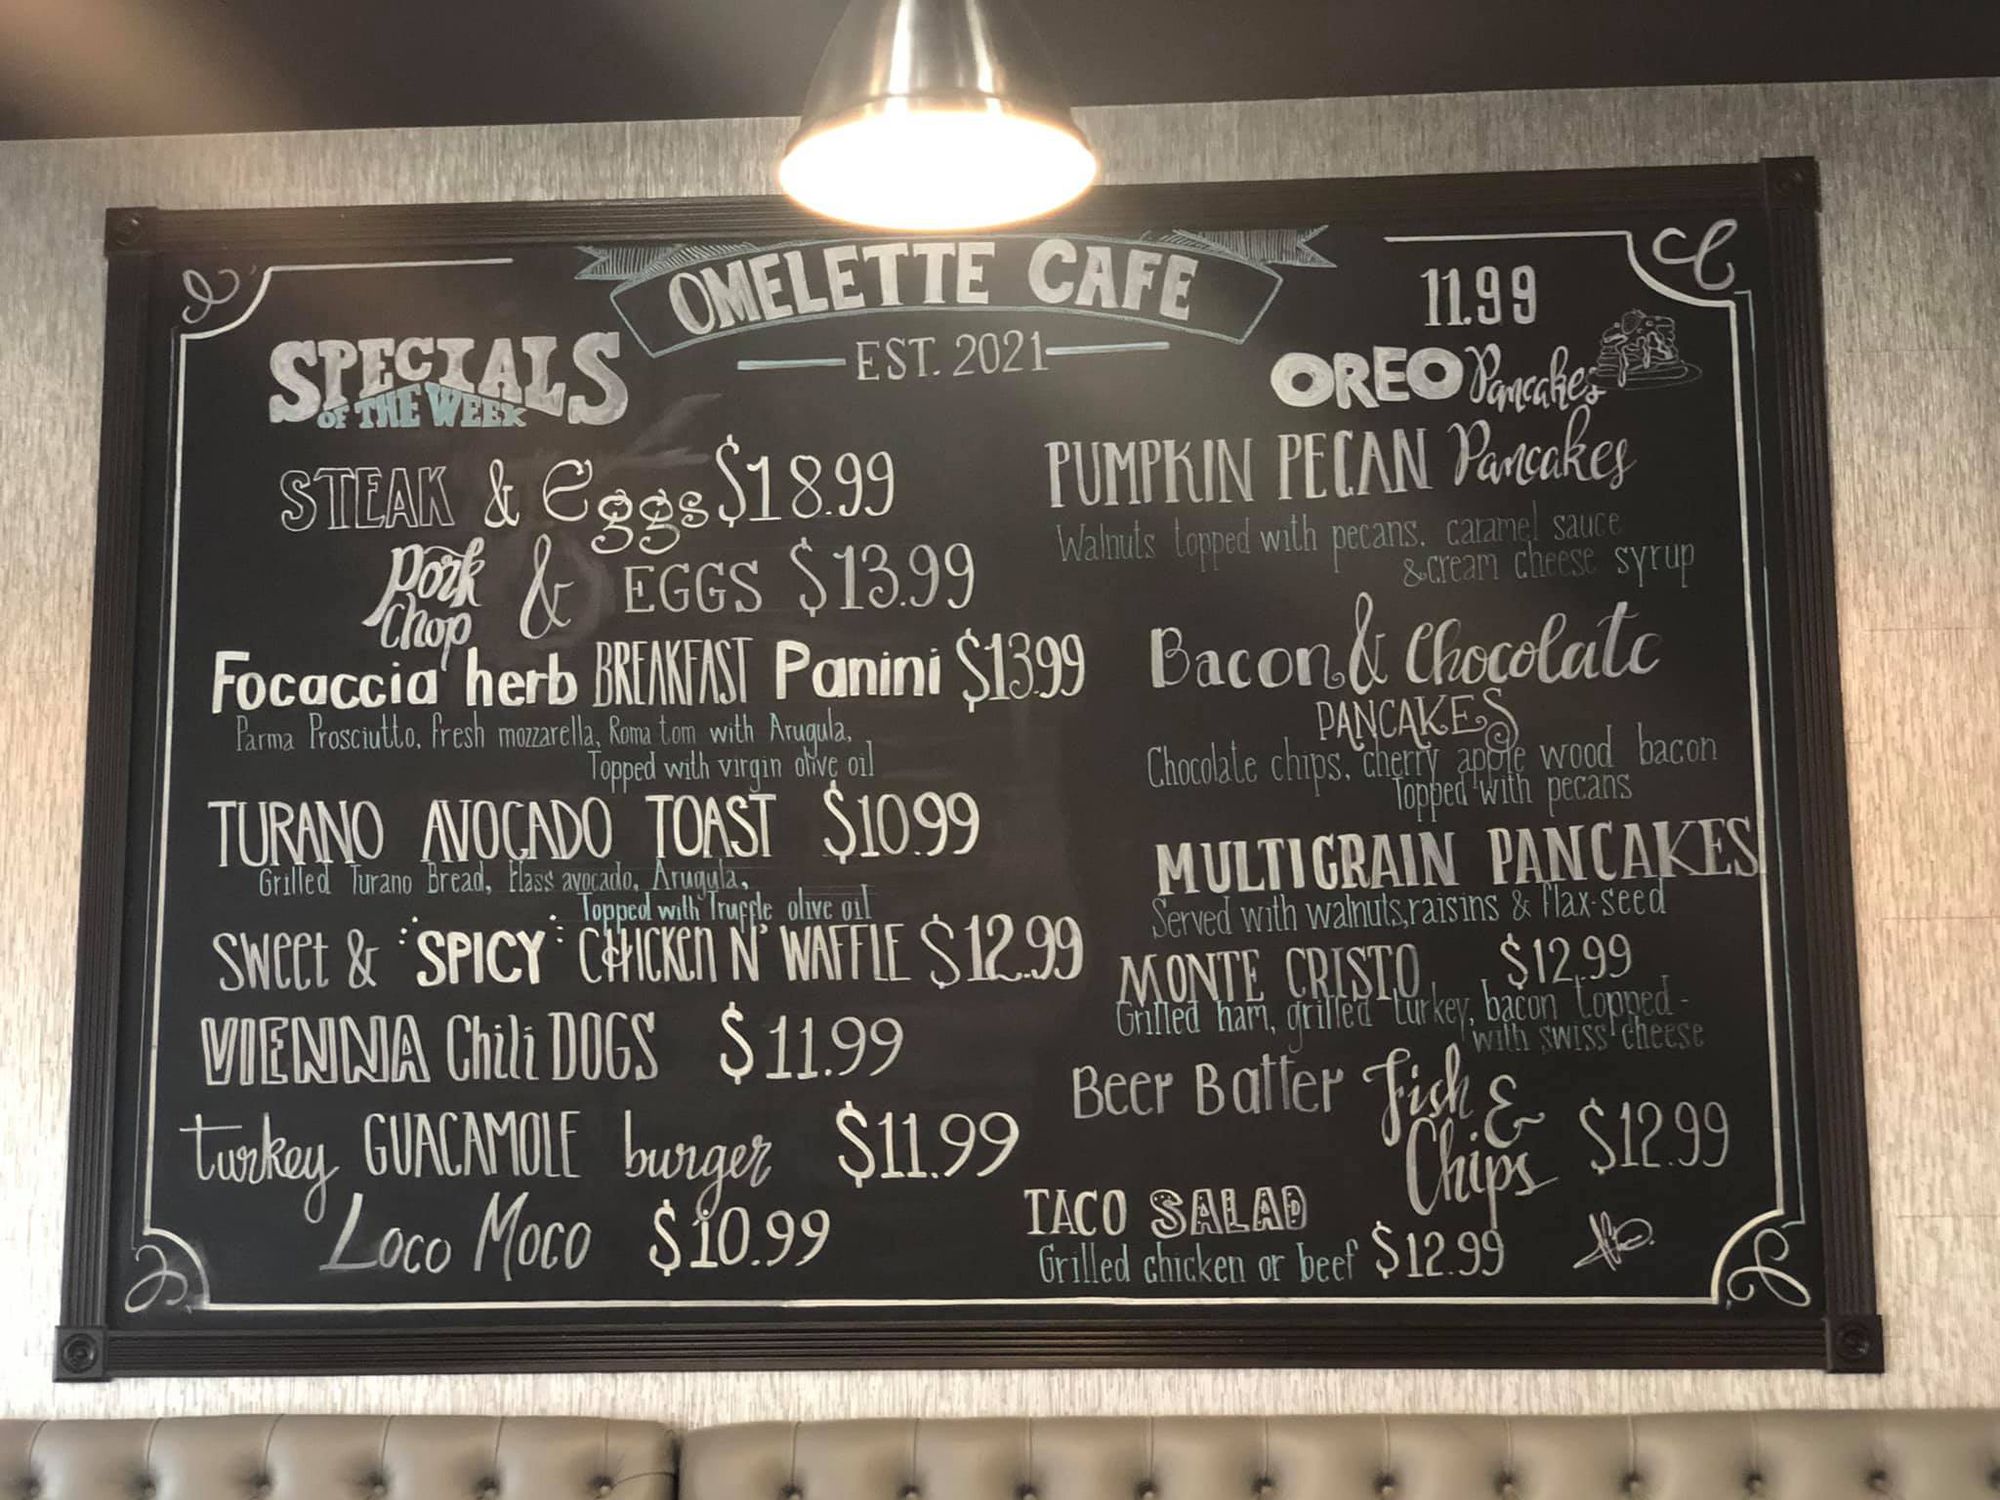 OMELETTE CAFE
EST. 2021
SPECIALS
OF THE WEEK
STEAK & Eggs $18.99
Pork Chop & EGGS $13.99
Focaccia herb BREAKFAST Panini $13.99
Parma Prosciutto, fresh mozzarella, Roma tom with Arugula,
Topped with virgin olive oil
TURANO AVOCADO TOAST $10.99
Grilled Turano Bread, Hass avocado, Arugula,
Topped with Truffle olive oil
SWEET & "SPICY" CHICKEN N' WAFFLE $12.99
VIENNA Chili DOGS $11.99
turkey GUACAMOLE burger $11.99
Loco Moco $10.99
11.99
OREO Pancakes
PUMPKIN PECAN Pancakes
Walnuts topped with pecans, caramel sauce
& cream cheese syrup
Bacon & Chocolate
PANCAKES
Chocolate chips, cherry apple wood bacon
Topped with pecans
MULTIGRAIN PANCAKES
Served with walnuts, raisins & flax-seed
MONTE CRISTO $12.99
Grilled ham, grilled turkey, bacon topped -
with swiss cheese
Beer Batter Fish & Chips $12.99
TACO SALAD
Grilled chicken or beef $12.99